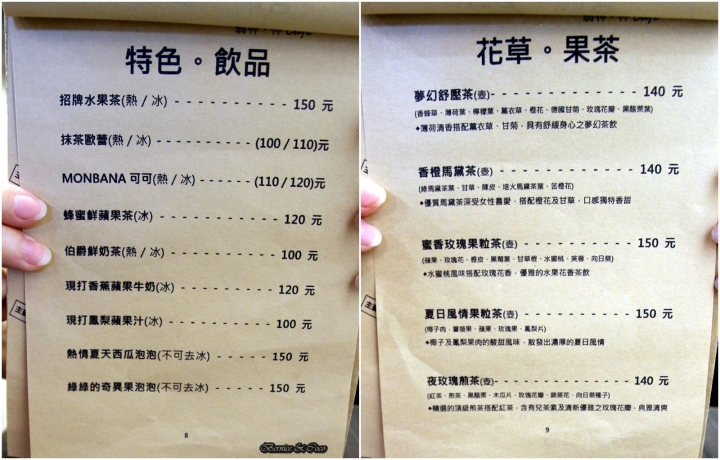 特色。飲品
招牌水果茶(熱 / 冰) - - - - - - - - - - - 150 元
抹茶歐蕾(熱 / 冰) - - - - - - - - - - (100 / 110)元
MONBANA 可可(熱 / 冰) - - - - - - (110 / 120)元
蜂蜜鮮蘋果茶(冰) - - - - - - - - - - - 120 元
伯爵鮮奶茶(熱 / 冰) - - - - - - - - - - 100 元
現打香蕉蘋果牛奶(冰) - - - - - - - - - 120 元
現打鳳梨蘋果汁(冰) - - - - - - - - - - 100 元
熱情夏天西瓜泡泡(不可去冰) - - - - - - 150 元
綠綠的奇異果泡泡(不可去冰) - - - - - - 150 元
8
Bernice & Coco
花草。果茶
夢幻舒壓茶(壺)- - - - - - - - - - - - - 140 元
(香蜂草、薄荷葉、檸檬葉、薰衣草、橙花、德國甘菊、玫瑰花瓣、黑醋栗葉)
◆薄荷清香搭配薰衣草、甘菊，具有舒緩身心之夢幻茶飲
香橙馬黛茶(壺) - - - - - - - - - - - - 140 元
(綠馬黛茶葉、甘草、陳皮、培火馬黛茶葉、苦橙花)
◆優質馬黛茶深受女性喜愛，搭配橙花及甘草，口感獨特香甜
蜜香玫瑰果粒茶(壺) - - - - - - - - - - 150 元
(蘋果、玫瑰花、橙皮、黑莓葉、甘草根、水蜜桃、芙蓉、向日葵)
◆水蜜桃風味搭配玫瑰花香，優雅的水果花香茶飲
夏日風情果粒茶(壺) - - - - - - - - - - 150 元
(椰子肉、薔薇果、蘋果、玫瑰果、鳳梨片)
◆椰子及鳳梨果肉的酸甜風味，散發出濃厚的夏日風情
夜玫瑰煎茶(壺)- - - - - - - - - - - - - 140 元
(紅茶、煎茶、黑醋栗、木瓜片、玫瑰花瓣、錦葵花、向日葵種子)
◆精選的頂級煎茶搭配紅茶，含有兒茶素及清新優雅之玫瑰花瓣，典雅清爽
9